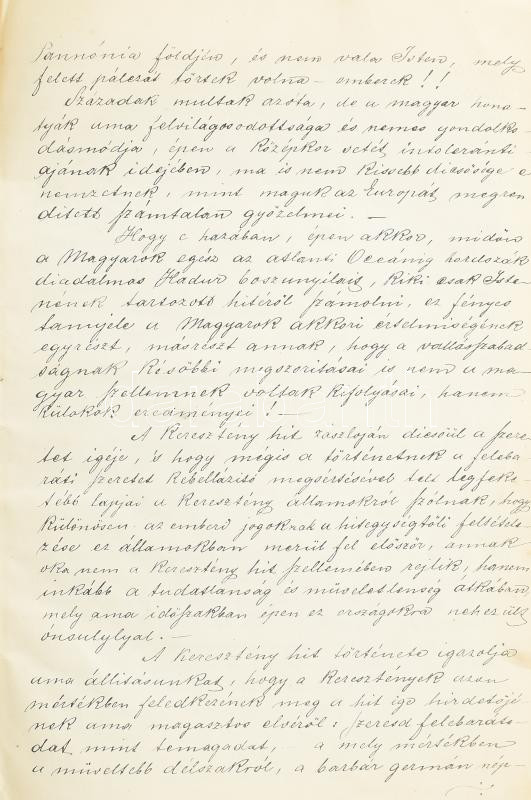 Pannónia földjén, és nem vala Isten, mely
felett pálczát törtek volna – emberek!!
Századak multak azóta, de a magyar hono-
tyák ama felvilágosodottsága és nemes gondolko
dasmódja, épen a középkor setét intoleránti-
ájának idejében, ma is nem kissebb dicsősége e
nemzetnek, mint maguk az Európát megren
ditett számtalan győzelmei. –
Hogy e hazában, épen akkor, midőn
a Magyarok egész az atlanti Oceánig hordozák
diadalmas Hadur boszunyilait, kiki csak Iste-
nének tartozott hitéről számolni, ez fényes
tanujele a Magyarok akkori értelmiségének
egyrészt, másrészt annak, hogy a vallásszabad
ságnak későbbi megszoritásai is nem a ma-
gyar szellemnek voltak kifolyásai, hanem
külokok eredményei! –
A keresztény hit zászloján dicsőül a szere-
tet igéje, 's hogy mégis a történetnek a feleba
ráti szeretet fellázitó megsértésével telt legfeke-
tébb lapjai a keresztény államokról szólnak, hogy
különösen az emberi jogoknak a hitegységtőli feltétele-
zése ez államokban merül fel először, annak
oka nem a keresztény hit szellemében rejlik, hanem
inkább a tudatlanság és műveletlenség átkában,
mely ama időszakban épen ez országokra nehezült
ónsulylyal. –
A keresztény hit története igazolja
ama állitásunkat, hogy a keresztények azon
mértékben feledkezének meg a hit ige hirdetőjé
nek ama magasztos elvéről: szeresd felebaráto-
dat, mint temagadat, – a mely mértékben
a műveltebb délszakról, a barbár germán nép-